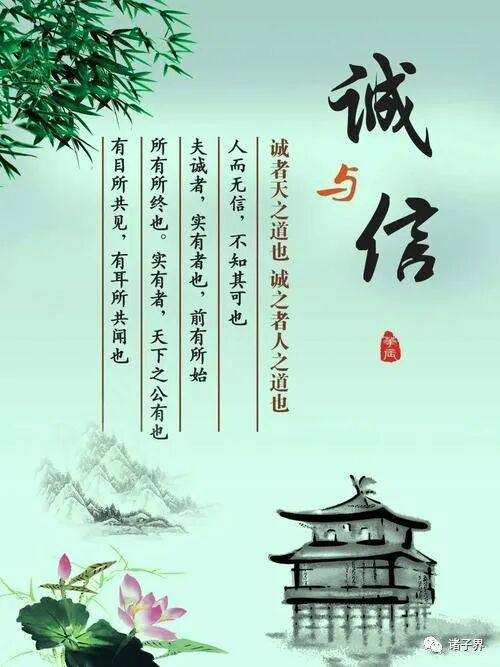 诚与信
诚者天之道也 诚之者人之道也
人而无信，不知其可也
夫诚者，实有者也，前有所始
所有所终也。实有者，天下之公有也
有目所共见，有耳所共闻也
诸子界